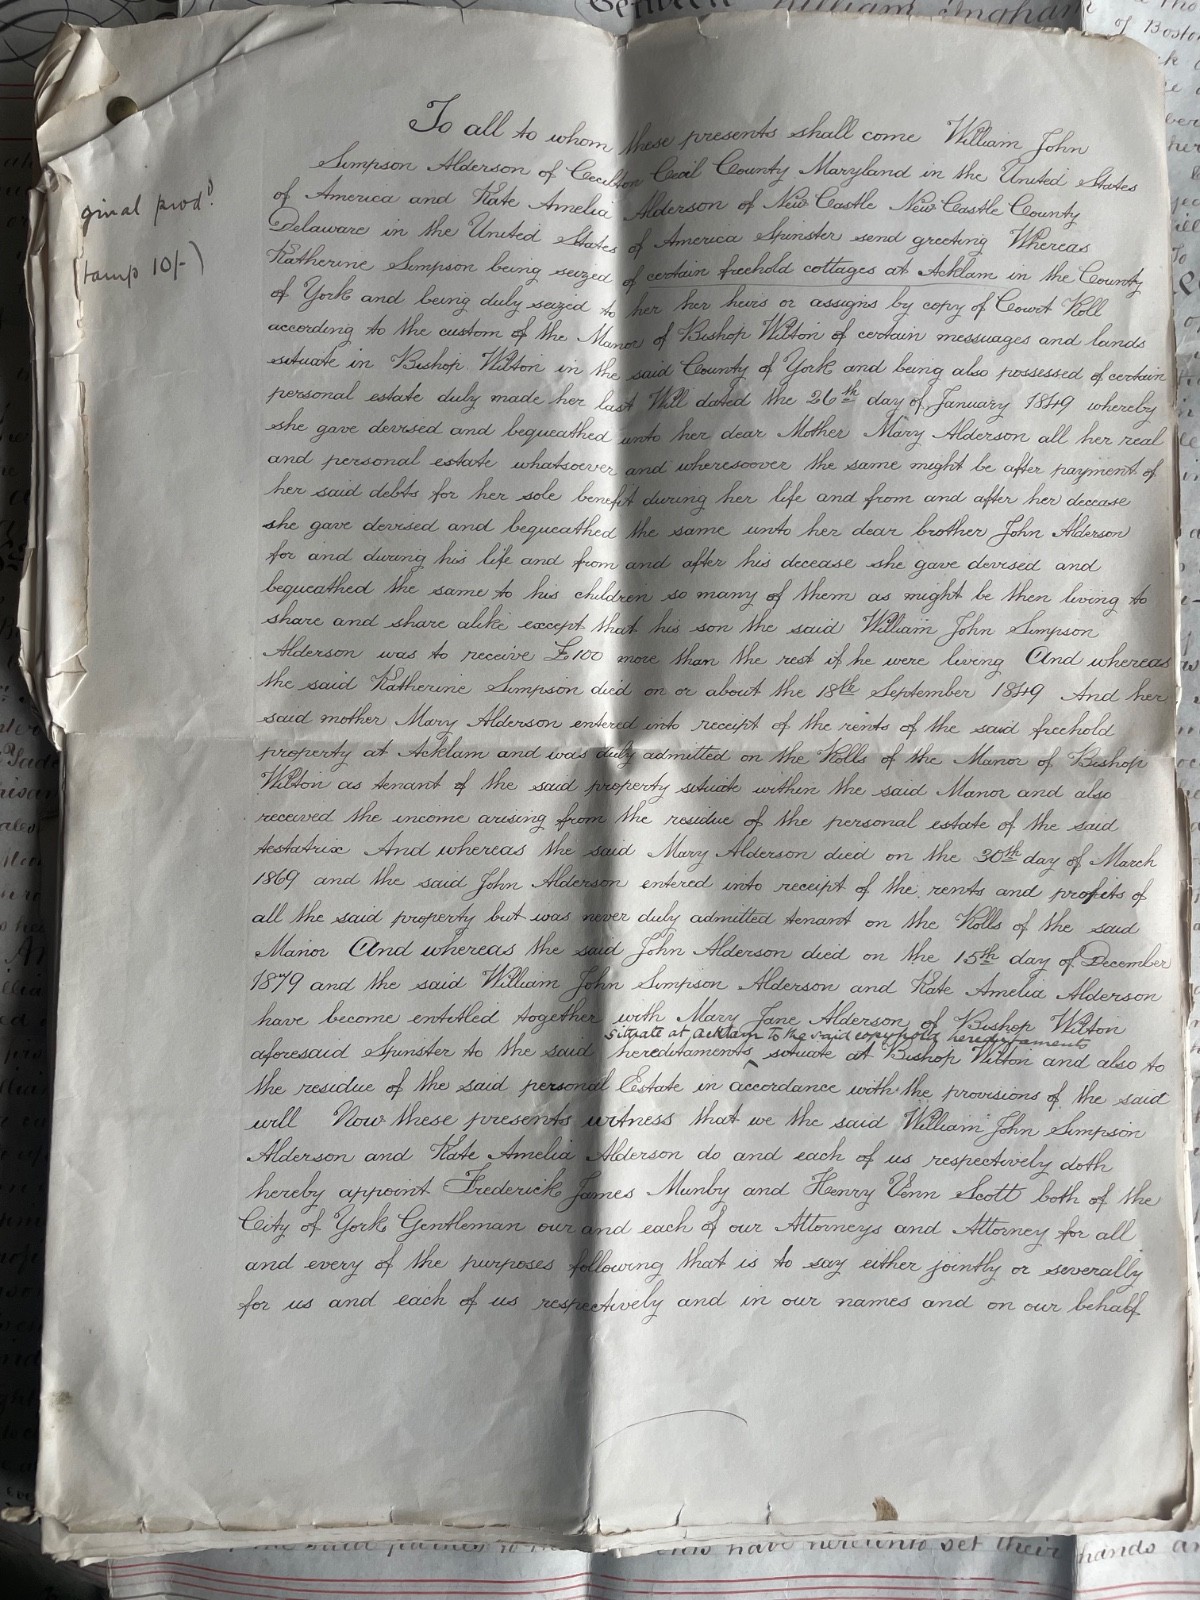 Between William Ingham
of Boston
ginal prod.d
stamp 10/-)
To all to whom these presents shall come William John
Simpson Alderson of Cecilton Cecil County Maryland in the United States
of America and Kate Amelia Alderson of New Castle New Castle County
Delaware in the United States of America Spinster send greeting Whereas
Katherine Simpson being seized of certain freehold cottages at Acklam in the County
of York and being duly seized to her her heirs or assigns by copy of Court Roll
according to the custom of the Manor of Bishop Wilton of certain messuages and lands
situate in Bishop Wilton in the said County of York and being also possessed of certain
personal estate duly made her last Will dated the 26th day of January 1849 whereby
she gave devised and bequeathed unto her dear Mother Mary Alderson all her real
and personal estate whatsoever and wheresoever the same might be after payment of
her said debts for her sole benefit during her life and from and after her decease
she gave devised and bequeathed the same unto her dear brother John Alderson
for and during his life and from and after his decease she gave devised and
bequeathed the same to his children so many of them as might be then living to
share and share alike except that his son the said William John Simpson
Alderson was to receive £100 more than the rest if he were living And whereas
the said Katherine Simpson died on or about the 18th September 1849 And her
said mother Mary Alderson entered into receipt of the rents of the said freehold
property at Acklam and was duly admitted on the Rolls of the Manor of Bishop
Wilton as tenant of the said property situate within the said Manor and also
received the income arising from the residue of the personal estate of the said
testatrix And whereas the said Mary Alderson died on the 30th day of March
1869 and the said John Alderson entered into receipt of the rents and profits of
all the said property but was never duly admitted tenant on the Rolls of the said
Manor And whereas the said John Alderson died on the 15th day of December
1879 and the said William John Simpson Alderson and Kate Amelia Alderson
have become entitled together with Mary Jane Alderson of Bishop Wilton
situate at Acklam to the said copyhold hereditaments
aforesaid Spinster to the said hereditaments situate at Bishop Wilton and also to
the residue of the said personal Estate in accordance with the provisions of the said
will Now these presents witness that we the said William John Simpson
Alderson and Kate Amelia Alderson do and each of us respectively doth
hereby appoint Frederick James Munby and Henry Venn Scott both of the
City of York Gentleman our and each of our Attorneys and Attorney for all
and every of the purposes following that is to say either jointly or severally
for us and each of us respectively and in our names and on our behalf
have hereunto set their hands an